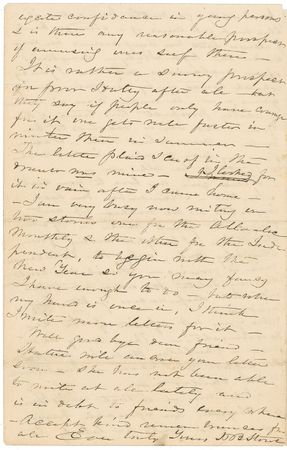 confidence in young persons
& is there any reasonable prospect
of amusing ones self there
It is rather a snowy prospect
after all but
they say if people only have courage
for it one gets more in
winter than in summer
The I left in the
was mine - I looked for
it in vain after I came home -
- I am very busy now writing on
two stories one for the Atlantic
Monthly & the other for the Inde
pendent, to begin with the
New Year so you may fancy
I have enough to do - but when
my hand is once in, I think
I write more letters for it -
Well good bye dear friend -
Hattie will answer your letter
soon - she has not been able
to write at all lately and
is in debt to friends every where
Accept kind remembrances for
all Ever truly Yours H B Stowe